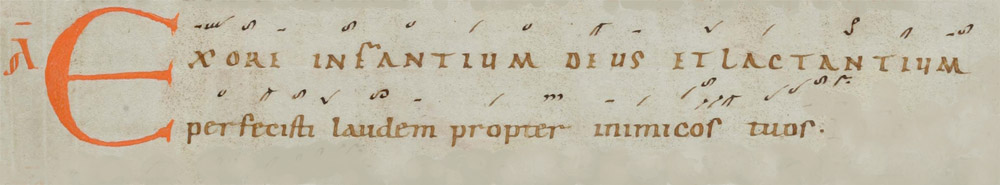 A EX ORE INFANTIUM DEUS ETLACTANTIUM
perfecisti laudem propter inimicos tuos.